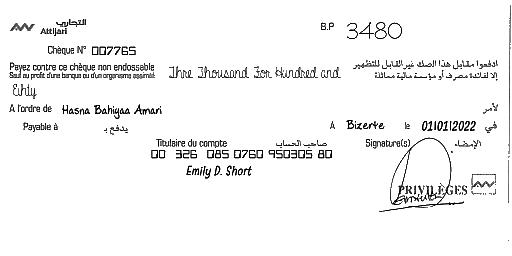 التجاري
Attijari
B.P 3480
Chèque N° 007765
Payez contre ce chèque non endossable
Sauf au profit d'une banque ou d'un organisme assimilé
Thre Thousand For Hundred and
ادفعوا مقابل هذا الصك غير القابل للتظهير
إلا لفائدة مصرف أو مؤسسة مالية مماثلة
Eihty
A l'ordre de Hasna Bahiyaa Amari لأمر
Payable à يدفع بـ A Bizerte le 01/01/2022 في
Titulaire du compte صاحب الحساب Signature(s) الإمضاء
00 326 085 0760 950305 80
Emily D. Short
PRIVILÈGES